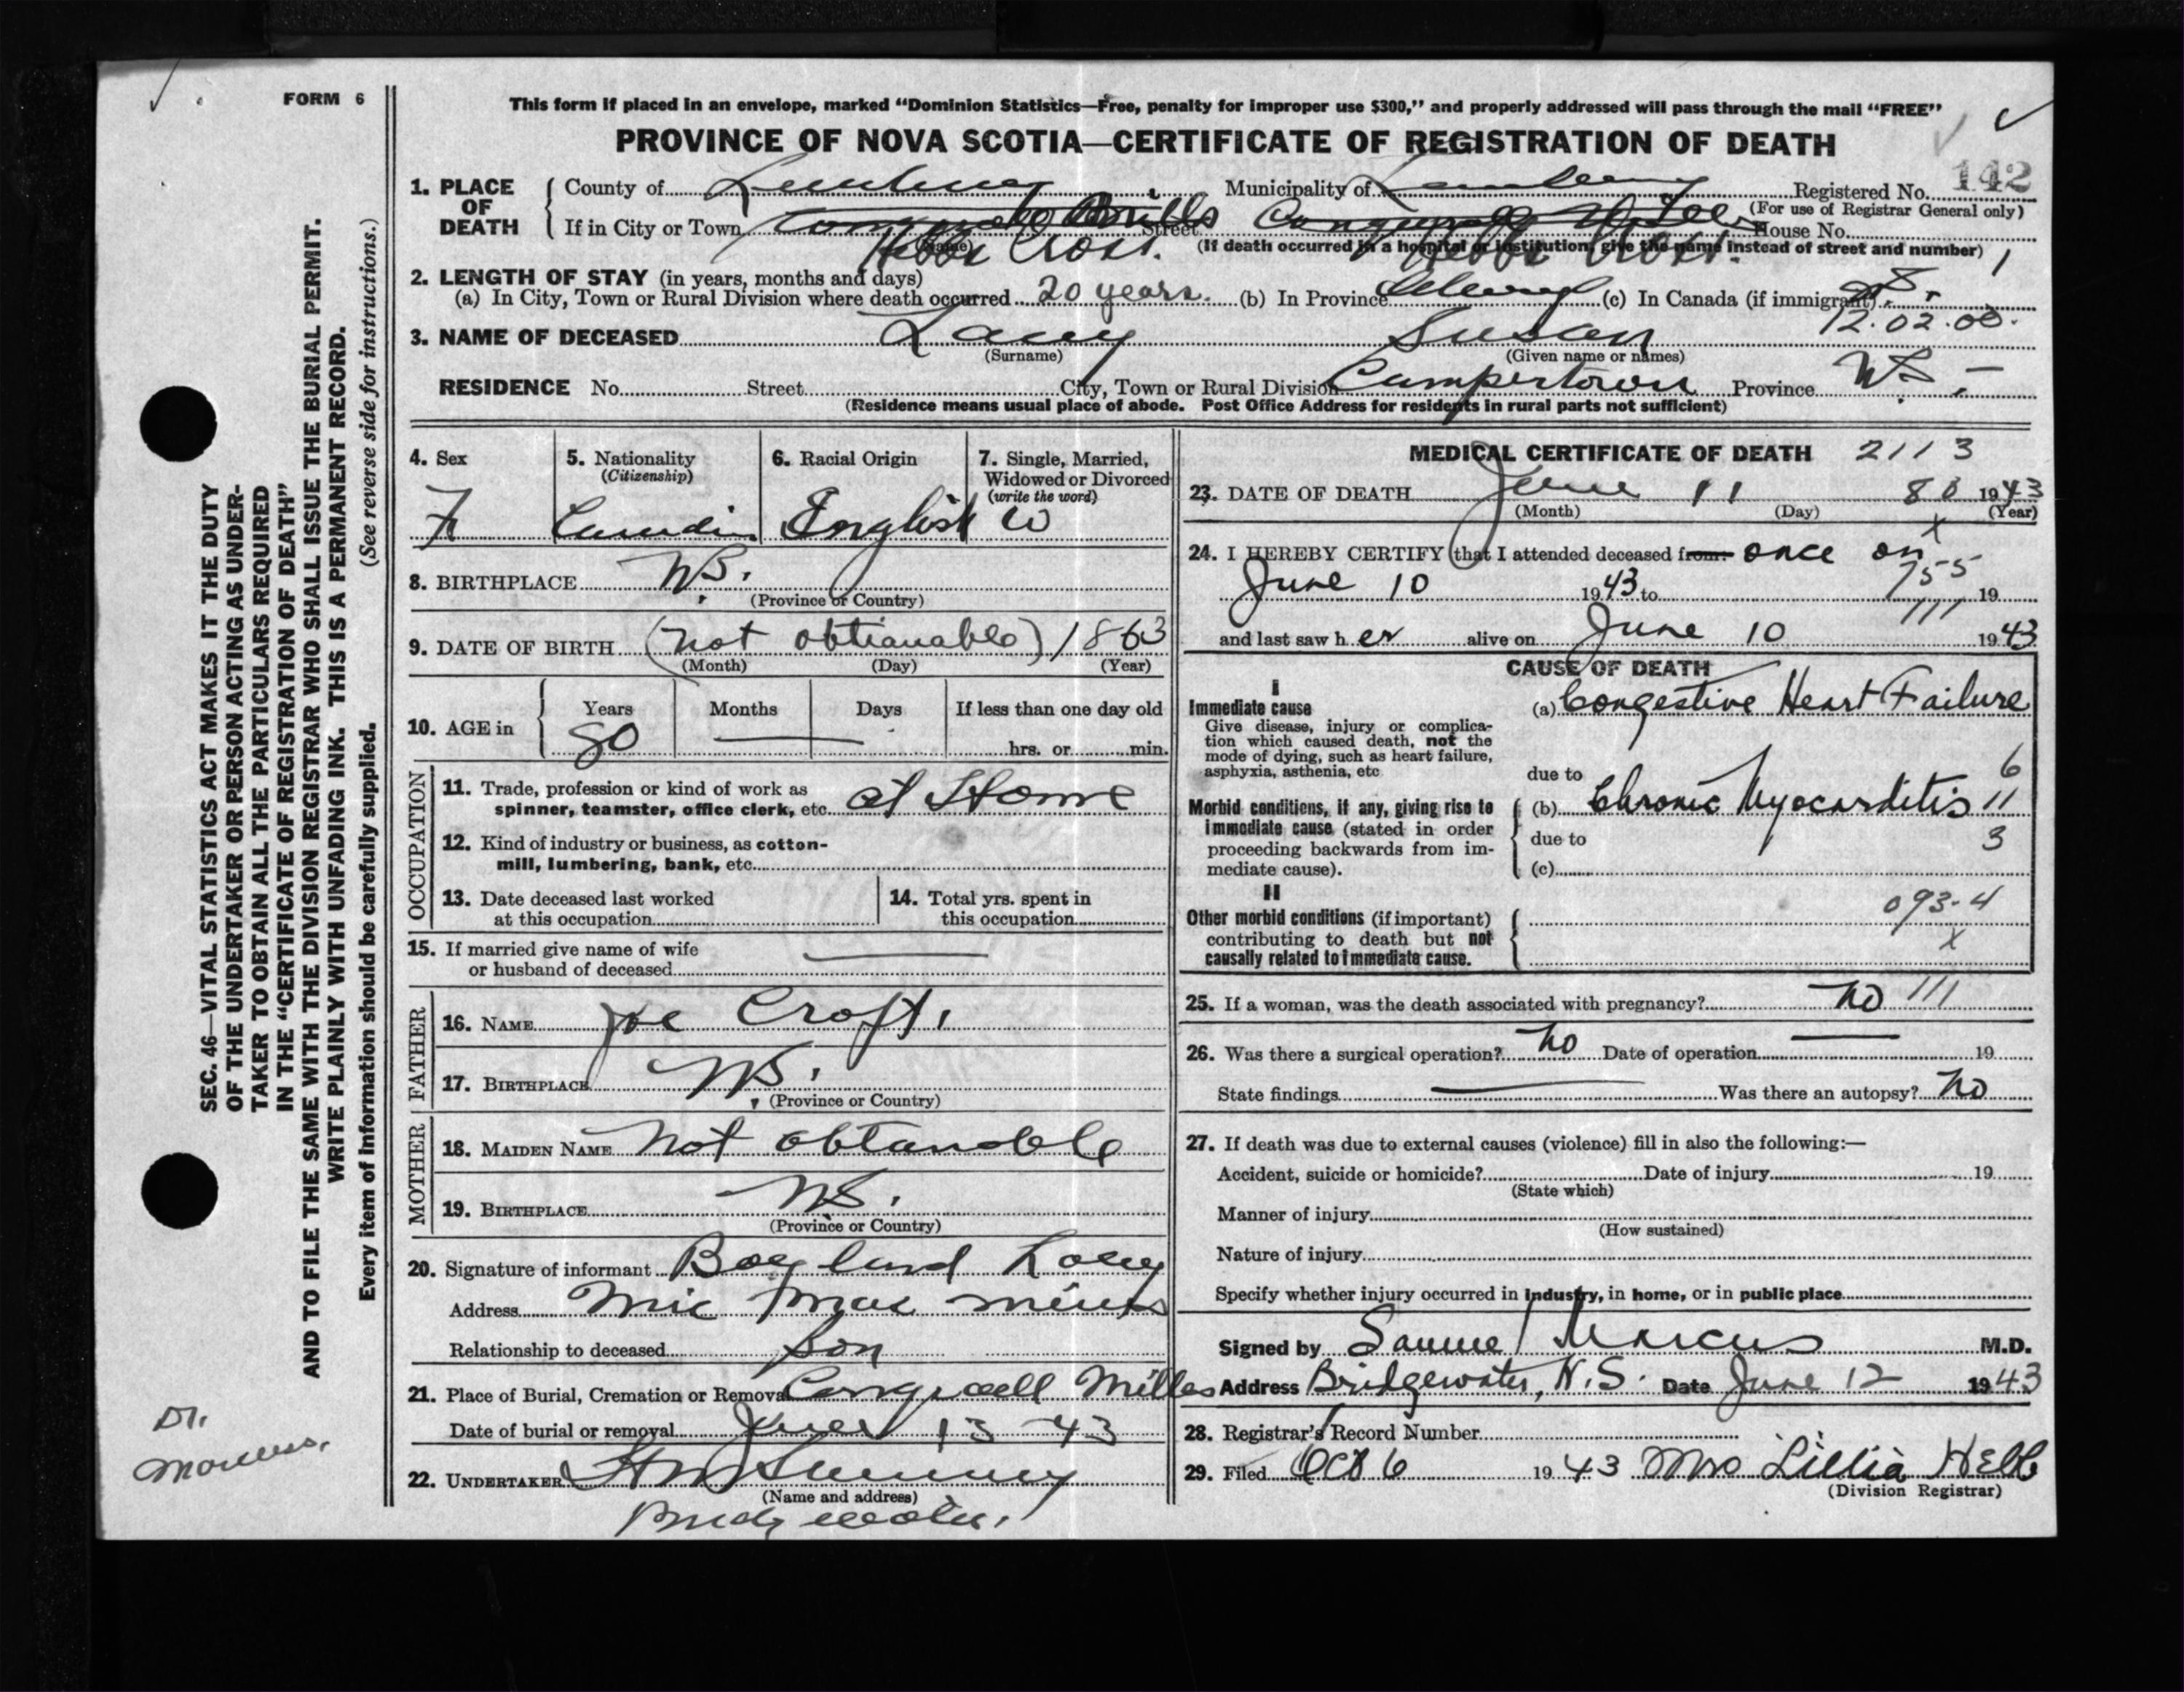 FORM 6
This form if placed in an envelope, marked “Dominion Statistics—Free, penalty for improper use $300,” and properly addressed will pass through the mail “FREE”
PROVINCE OF NOVA SCOTIA—CERTIFICATE OF REGISTRATION OF DEATH
142
1. PLACE OF DEATH
County of Municipality of Registered No.
(For use of Registrar General only)
If in City or Town Street House No.
(Name) (If death occurred in a hospital or institution, give the name instead of street and number)
Hebbs Cross. Hebbs Cross.
2. LENGTH OF STAY (in years, months and days)
(a) In City, Town or Rural Division where death occurred 20 years. (b) In Province (c) In Canada (if immigrant)
12.02.00.
3. NAME OF DECEASED Lacey Susan
(Surname) (Given name or names)
RESIDENCE No. Street City, Town or Rural Division Campertown Province N.S.
(Residence means usual place of abode. Post Office Address for residents in rural parts not sufficient)
4. Sex F
5. Nationality (Citizenship)
6. Racial Origin English
7. Single, Married, Widowed or Divorced (write the word) W
8. BIRTHPLACE N.S.
(Province or Country)
9. DATE OF BIRTH (not obtianable) 1863
(Month) (Day) (Year)
10. AGE in Years Months Days If less than one day old
80 — hrs. or min.
OCCUPATION
11. Trade, profession or kind of work as spinner, teamster, office clerk, etc. at Home
12. Kind of industry or business, as cotton-mill, lumbering, bank, etc.
13. Date deceased last worked at this occupation
14. Total yrs. spent in this occupation
15. If married give name of wife or husband of deceased —
FATHER
16. NAME Joe Croft.
17. BIRTHPLACE N.S.
(Province or Country)
MOTHER
18. MAIDEN NAME not obtanable
19. BIRTHPLACE N.S.
(Province or Country)
20. Signature of informant Lacey
Address Mic Mac
Relationship to deceased Son
21. Place of Burial, Cremation or Removal
Date of burial or removal June 13 - 43
22. UNDERTAKER
(Name and address)
Bridgewater.
MEDICAL CERTIFICATE OF DEATH 2113
23. DATE OF DEATH June 11 80 1943
(Month) (Day) (Year)
24. I HEREBY CERTIFY that I attended deceased from: once on
June 10 1943 to 19
755
111
and last saw her alive on June 10 1943
CAUSE OF DEATH
I
Immediate cause
Give disease, injury or complication which caused death, not the mode of dying, such as heart failure, asphyxia, asthenia, etc
(a) Congestive Heart Failure
due to 6
Morbid conditions, if any, giving rise to immediate cause (stated in order proceeding backwards from immediate cause).
(b) Chronic Myocarditis 11
due to 3
(c)
II
Other morbid conditions (if important) contributing to death but not causally related to immediate cause.
093-4
X
25. If a woman, was the death associated with pregnancy? No 111
26. Was there a surgical operation? No Date of operation — 19
State findings — Was there an autopsy? No
27. If death was due to external causes (violence) fill in also the following:—
Accident, suicide or homicide? Date of injury 19
(State which)
Manner of injury
(How sustained)
Nature of injury
Specify whether injury occurred in industry, in home, or in public place
Signed by Samuel Marcus M.D.
Address Bridgewater, N.S. Date June 12 1943
28. Registrar's Record Number
29. Filed Oct 6 1943 Mrs Lillia Hebb
(Division Registrar)
SEC. 46—VITAL STATISTICS ACT MAKES IT THE DUTY
OF THE UNDERTAKER OR PERSON ACTING AS UNDER-
TAKER TO OBTAIN ALL THE PARTICULARS REQUIRED
IN THE “CERTIFICATE OF REGISTRATION OF DEATH”
AND TO FILE THE SAME WITH THE DIVISION REGISTRAR WHO SHALL ISSUE THE BURIAL PERMIT.
WRITE PLAINLY WITH UNFADING INK. THIS IS A PERMANENT RECORD.
Every item of information should be carefully supplied. (See reverse side for instructions.)
Dr.
Marcus.